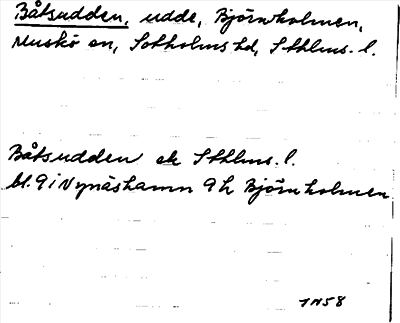 Båtsudden, udde, Björnholmen,
Muskö sn, Sotholms hd, Sthlms. l.
Båtsudden ek Sthlms. l.
bl. 9 i Nynäshamn 9 h Björnholmen
1958